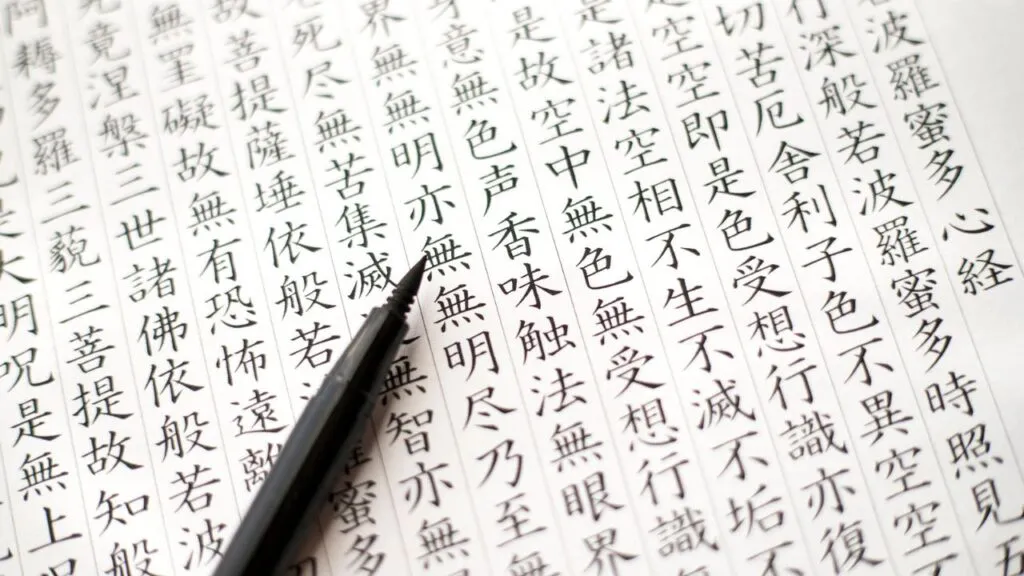 波羅蜜多心経
行深般若波羅蜜多時照見五
切苦厄舎利子色不異空空不
是空空即是色受想行識亦復
是諸法空相不生不滅不垢不
是故空中無色無受想行識
身意無色声香味触法無眼界
界無無明亦無無明尽乃至無
死尽無苦集滅無智亦無
故菩提薩埵依般若蜜多
無罣礙故無有恐怖遠離
究竟涅槃三世諸佛依般若波
阿耨多羅三藐三菩提故知般
大明呪是無上呪